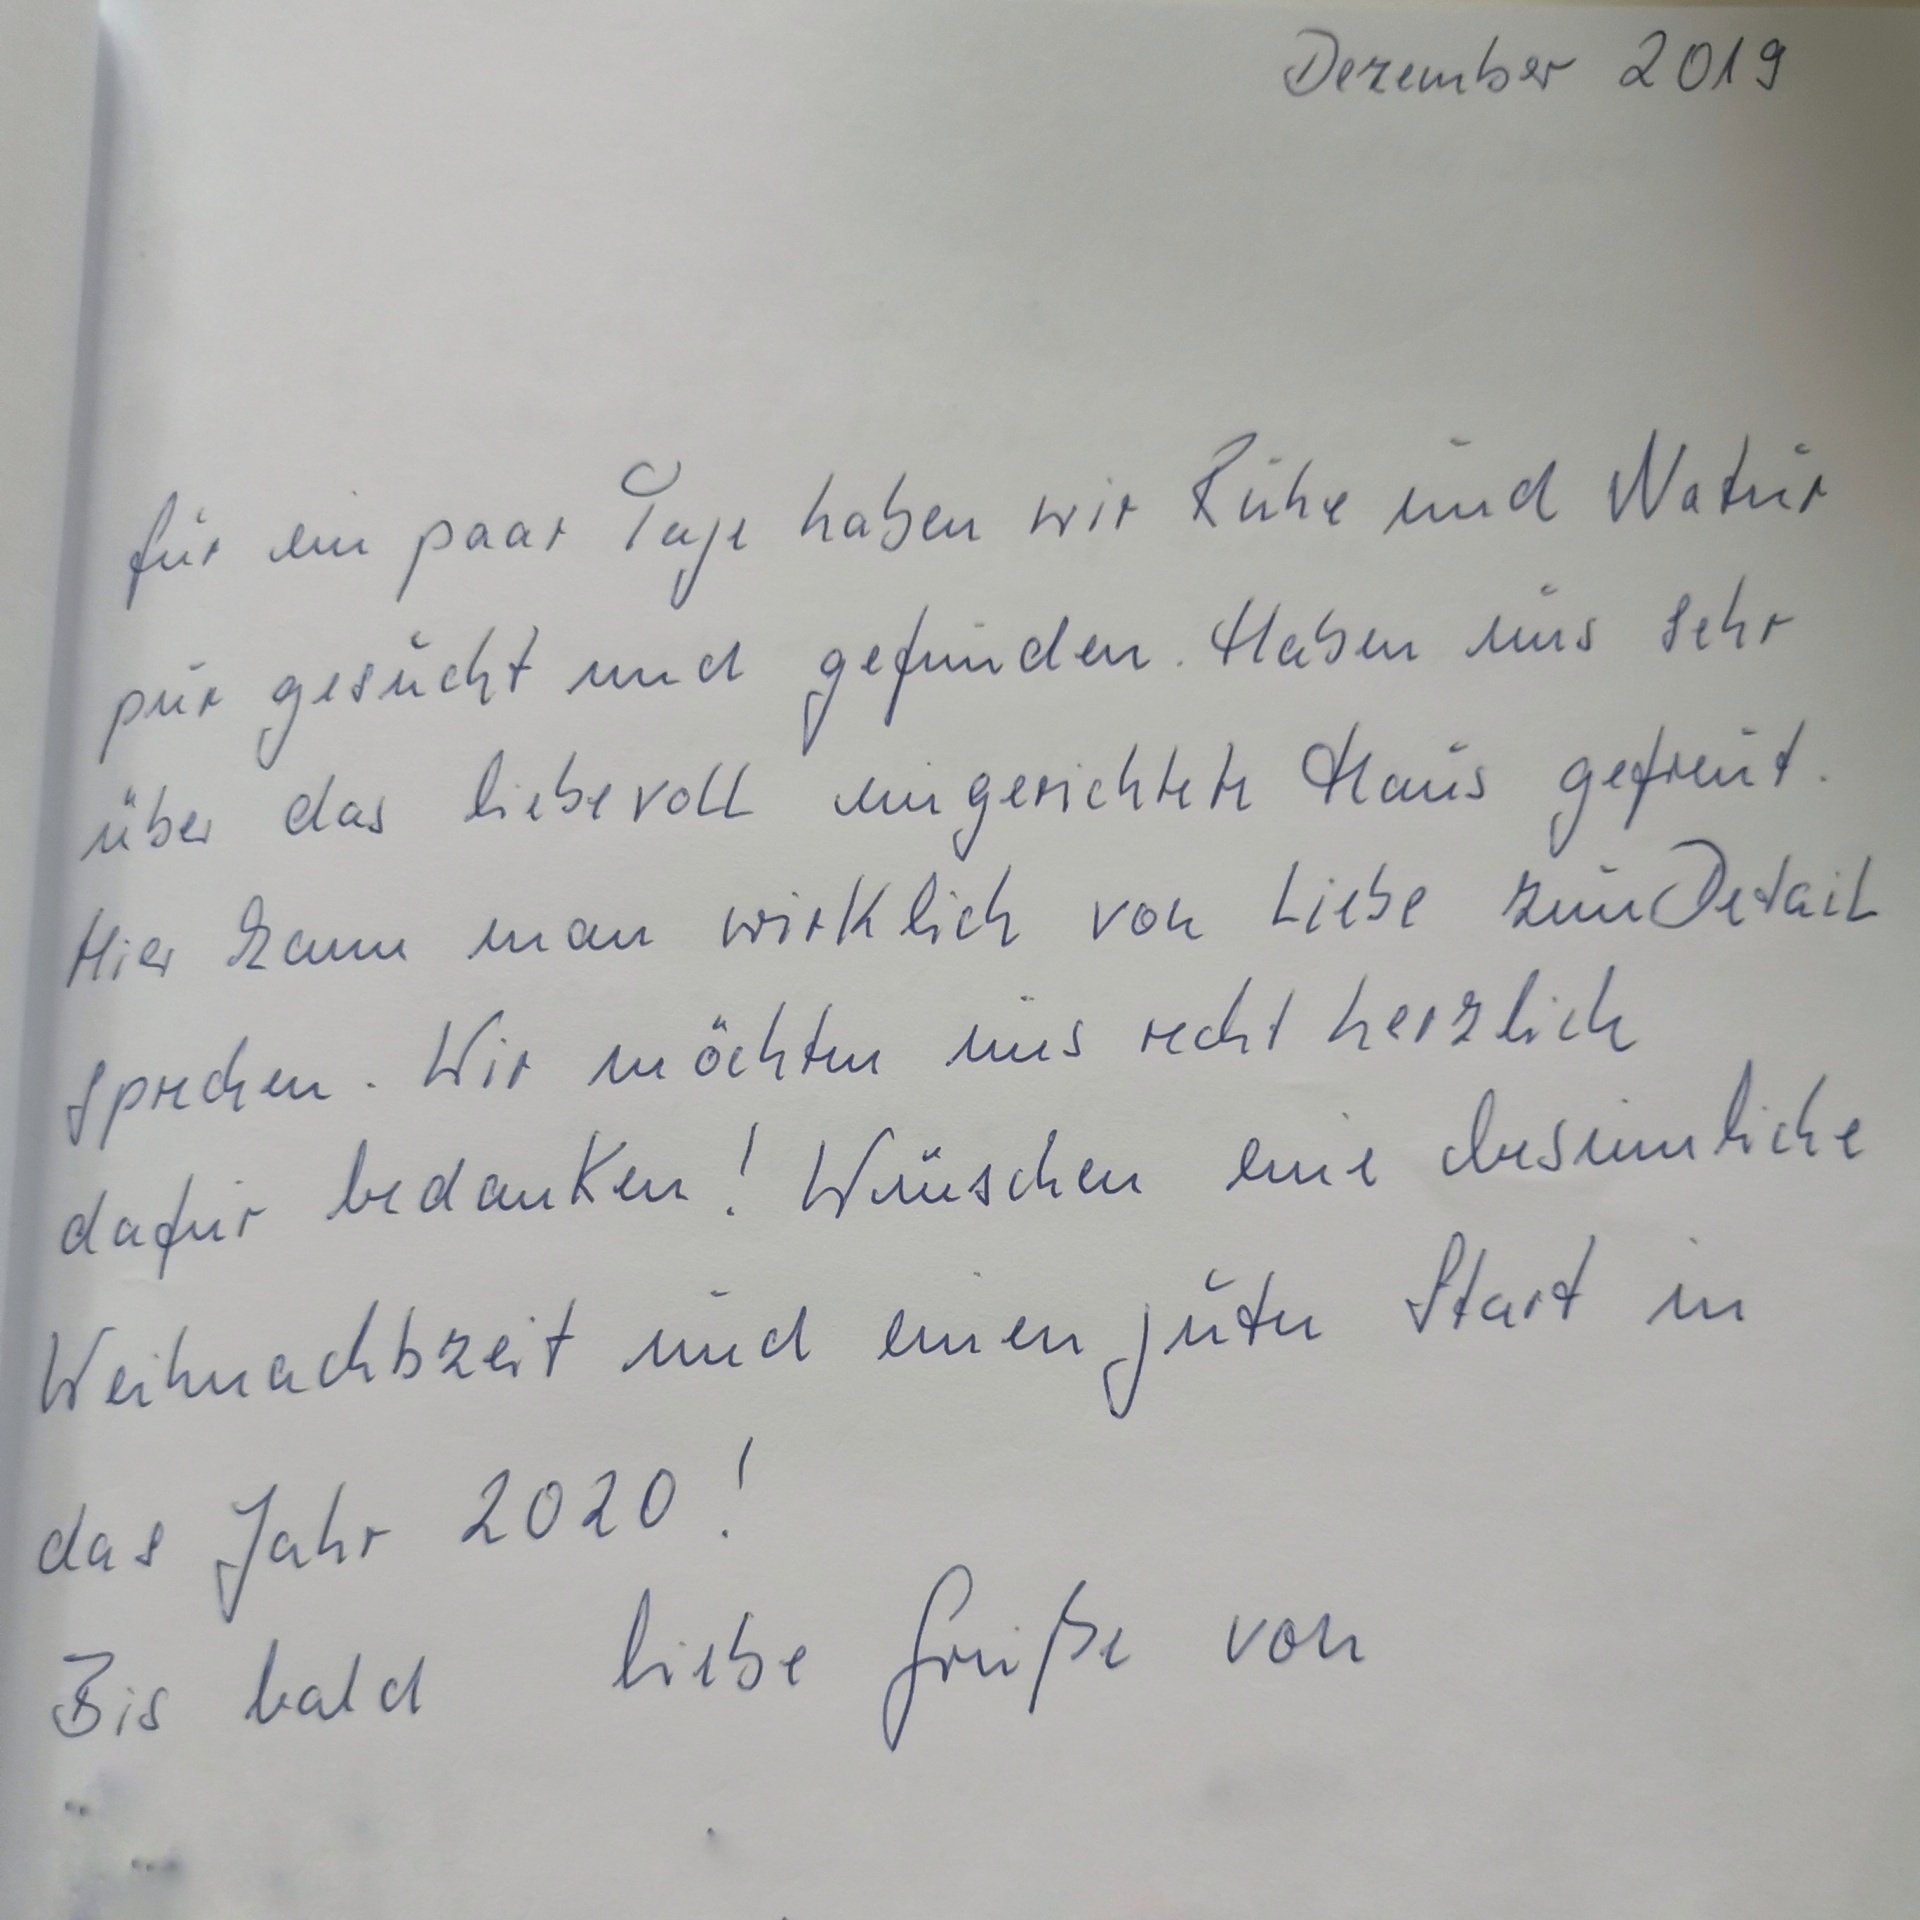 Dezember 2019
für ein paar Tage haben wir Ruhe und Natur
pur gesucht und gefunden. Haben uns sehr
über das liebevoll eingerichtete Haus gefreut.
Hier kann man wirklich von Liebe zum Detail
sprechen. Wir möchten uns recht herzlich
dafür bedanken! Wünschen eine besinnliche
Weihnachtszeit und einen guten Start in
das Jahr 2020!
Bis bald liebe Grüße von